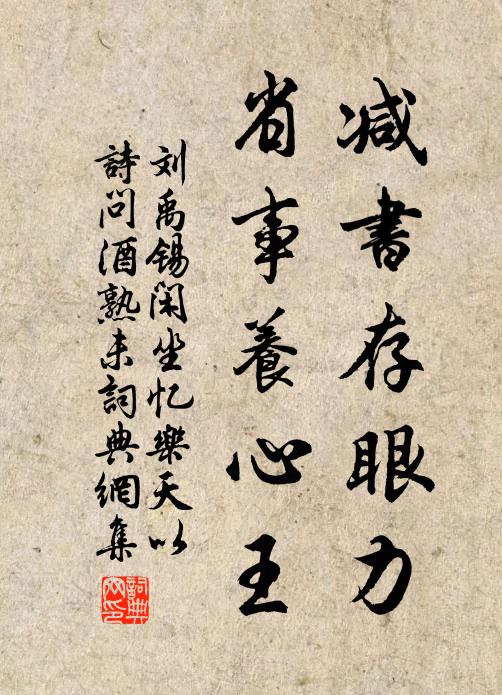 减書存眼力
省事養心王
刘禹锡閑坐忆樂天以
詩问酒熟未詞典網集
詞典網印